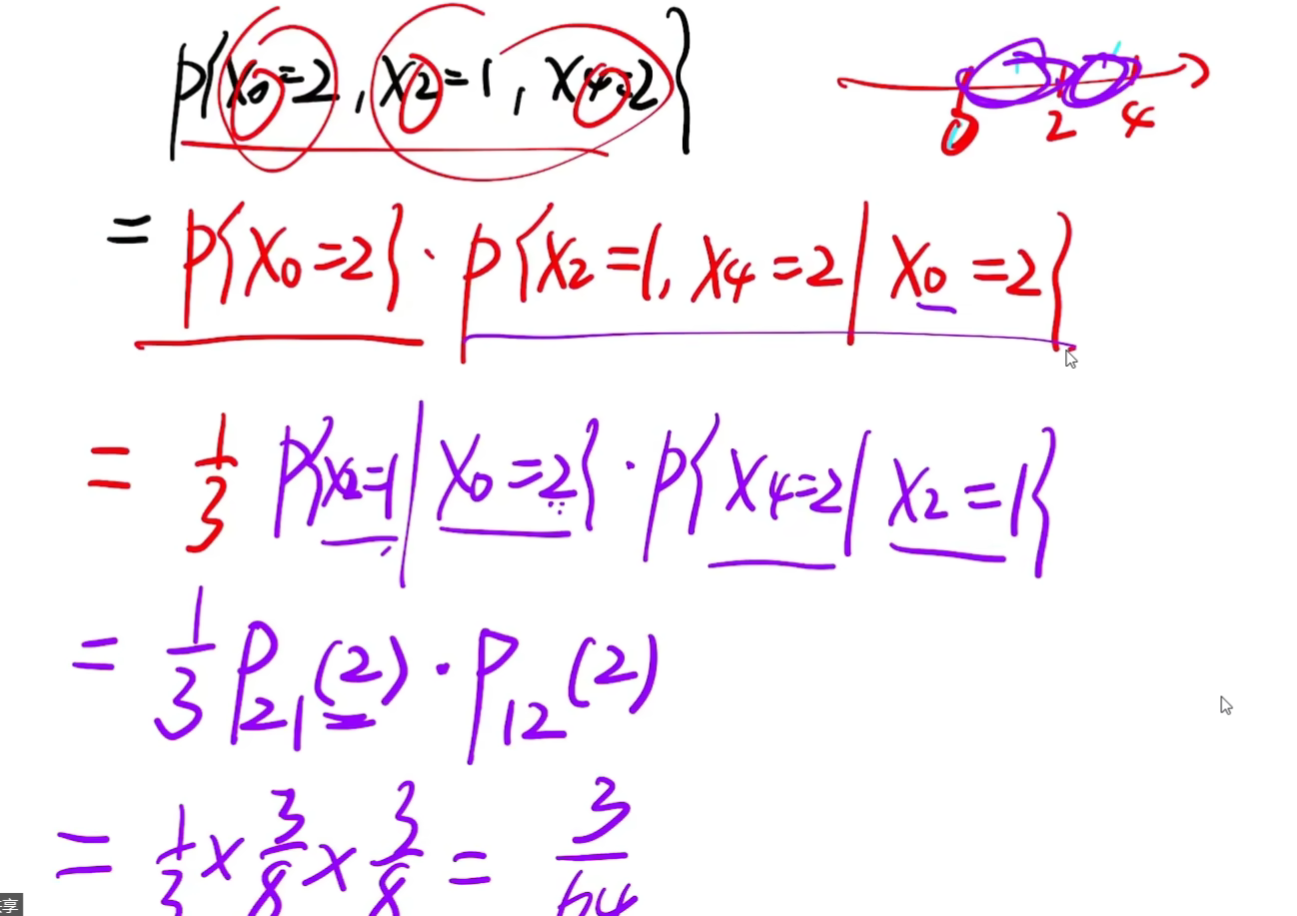 P{X₀=2, X₂=1, X₄=2}
0 2 4
= P{X₀=2}·P{X₂=1, X₄=2|X₀=2}
= 1/3 P{X₂=1|X₀=2}·P{X₄=2|X₂=1}
= 1/3 P₂₁(2)·P₁₂(2)
= 1/3×3/8×3/8 = 3/64
享